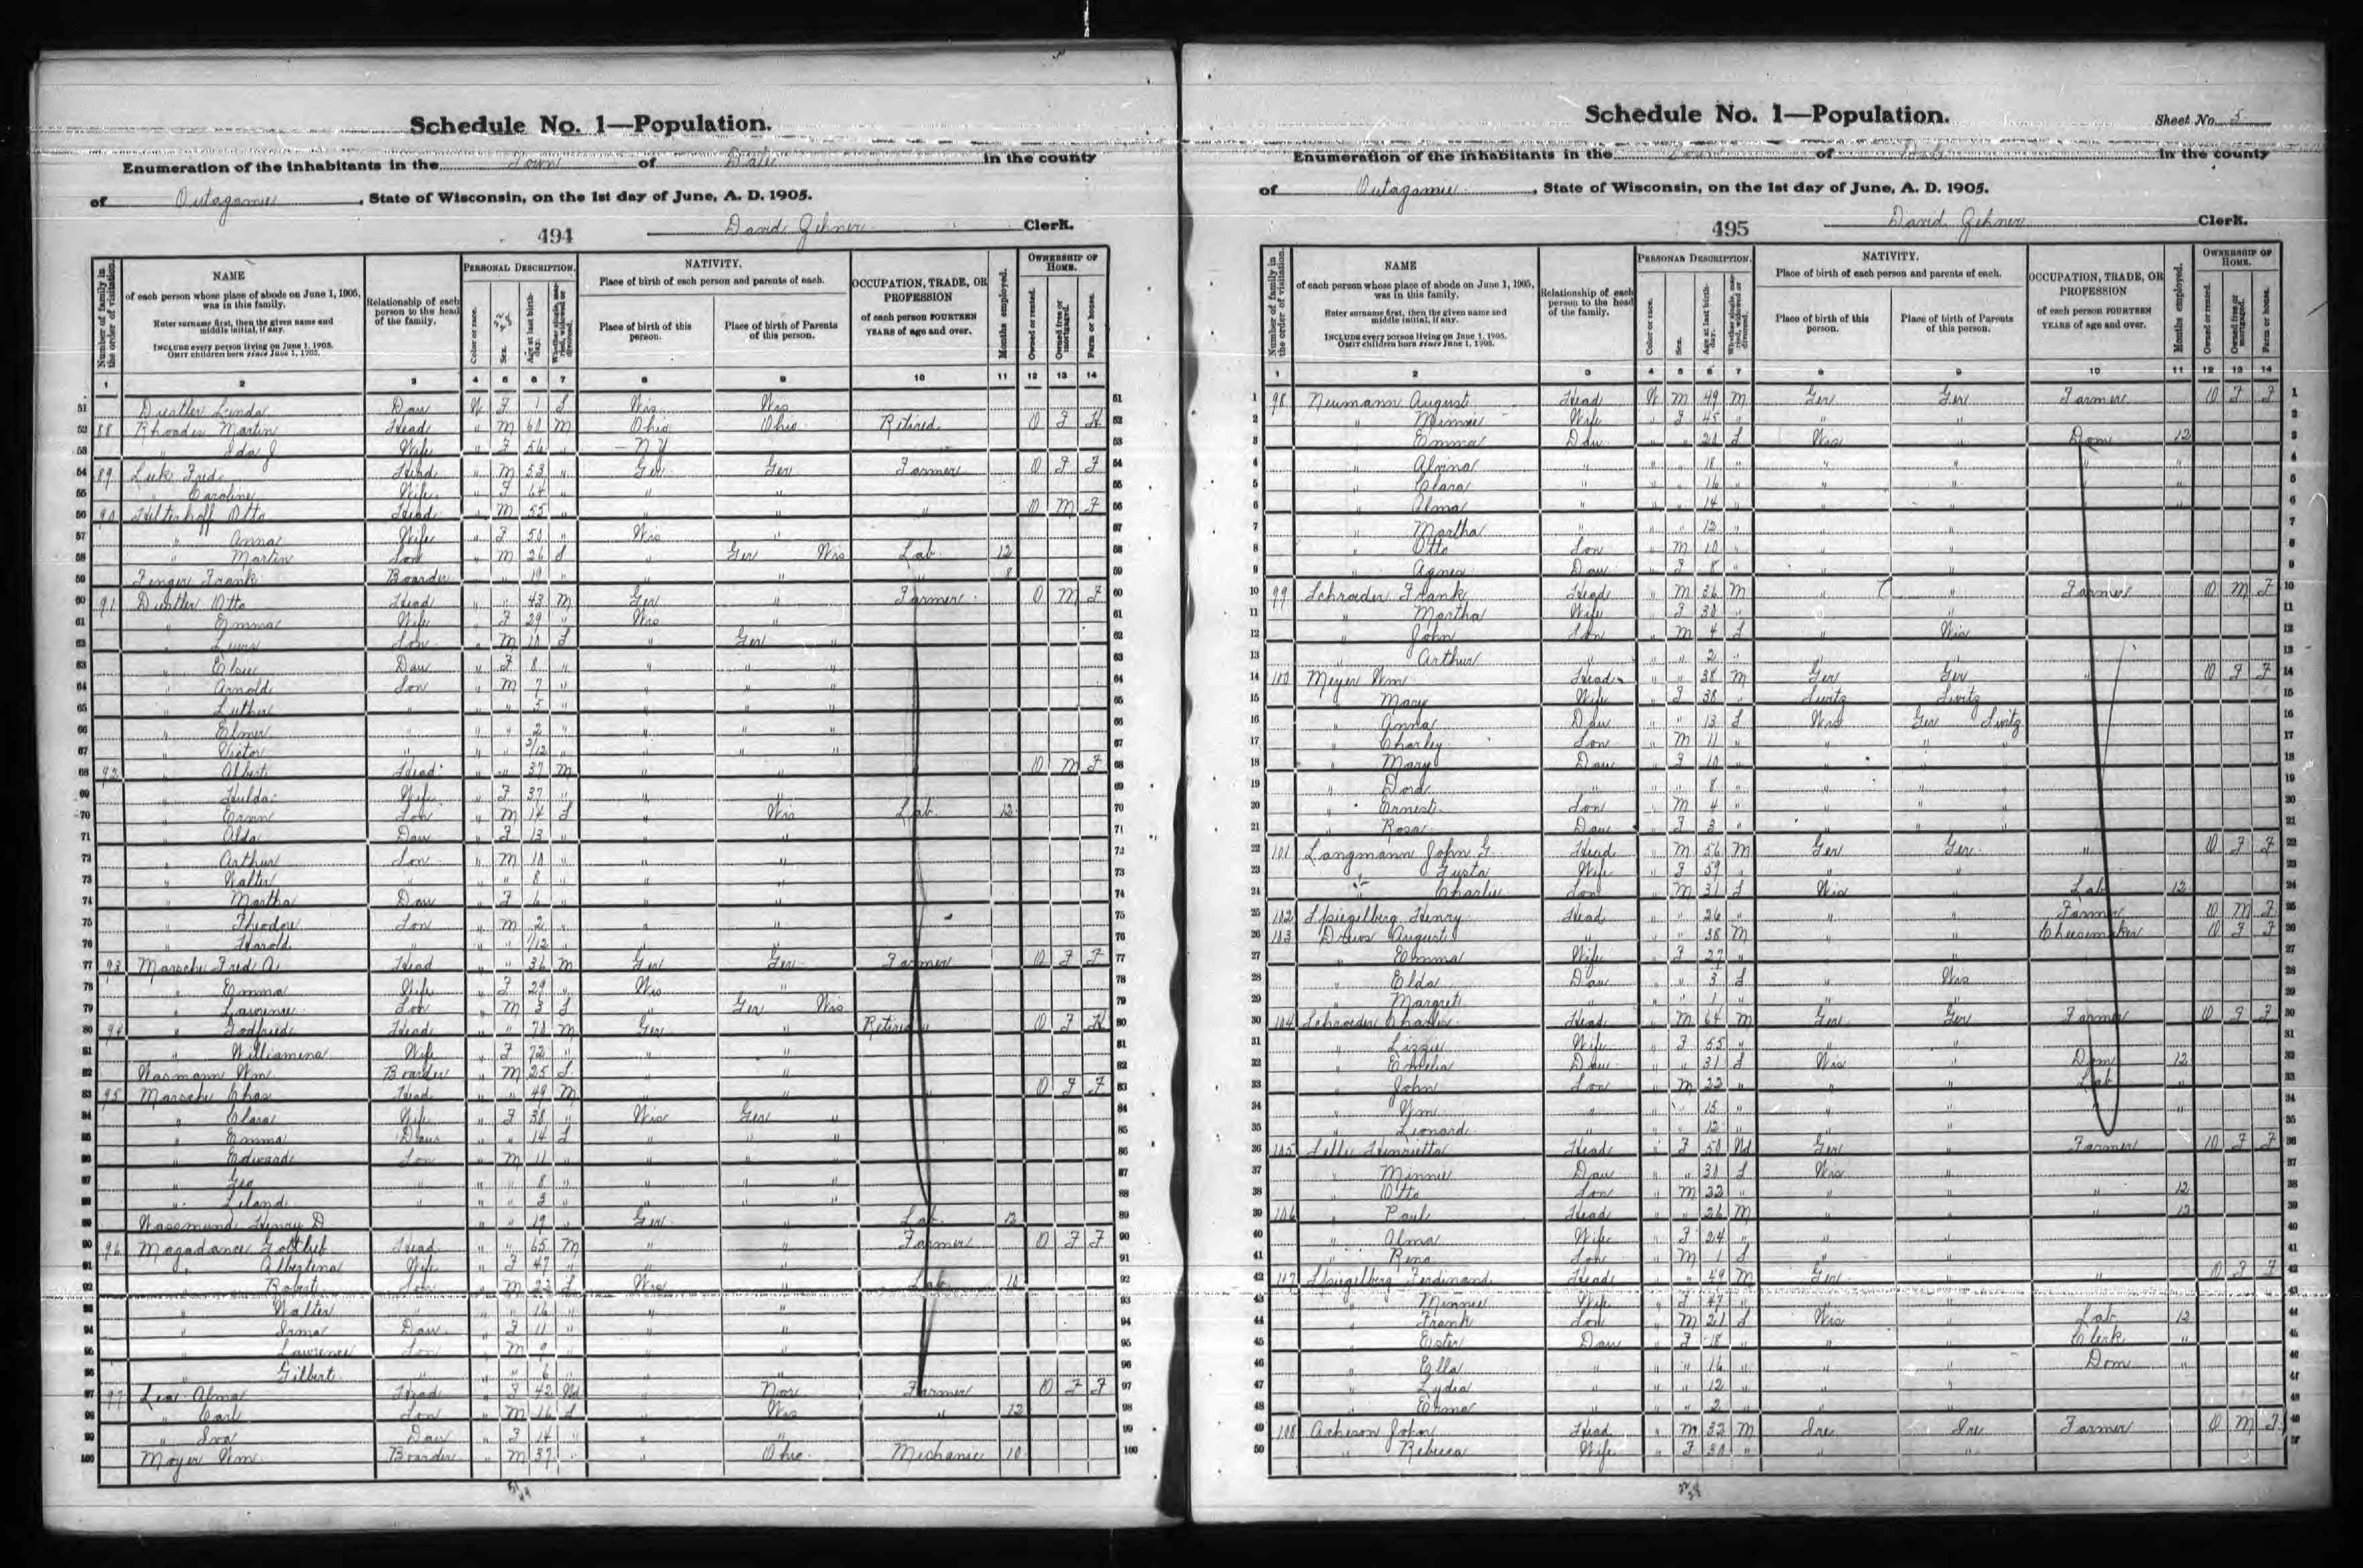 Schedule No. 1—Population.
Enumeration of the inhabitants in the Town of Dale in the county
of Outagamie, State of Wisconsin, on the 1st day of June, A. D. 1905.
494 David Gehner Clerk.
Number of family in the order of visitation.
NAME
of each person whose place of abode on June 1, 1905, was in this family.
Enter surname first, then the given name and middle initial, if any.
INCLUDE every person living on June 1, 1905.
OMIT children born since June 1, 1905.
Relationship of each person to the head of the family.
PERSONAL DESCRIPTION.
Color or race.
Sex.
Age at last birthday.
Whether single, married, widowed or divorced.
NATIVITY.
Place of birth of each person and parents of each.
Place of birth of this person.
Place of birth of Parents of this person.
OCCUPATION, TRADE, OR PROFESSION
of each person FOURTEEN YEARS of age and over.
Months employed.
OWNERSHIP OF HOME.
Owned or rented.
Owned free or mortgaged.
Farm or house.
1 2 3 4 5 6 7 8 9 10 11 12 13 14
51 Linda Dau W F 1 S Wis Wis 51
52 88 Rhoades Martin Head " M 61 M Ohio Ohio Retired O F H 52
53 " Ida J Wife " F 56 " N Y 53
54 89 Luk Fred Head " M 53 " Ger Ger Farmer O F F 54
55 " Caroline Wife " F 64 " " " 55
56 90 Hilterhoff Otto Head " M 55 " " " " O M F 56
57 " Anna Wife " F 50 " Wis " 57
58 " Martin Son " M 26 S " Ger Wis Lab 12 58
59 Zenger Frank Boarder " " 19 " " " " 8 59
60 91 Otto Head " " 43 M Ger " Farmer O M F 60
61 " Emma Wife " F 29 " Wis " 61
62 " Son " M 10 S " Ger " 62
63 " Elsie Dau " F 8 " " " " 63
64 " Arnold Son " M 7 " " " " 64
65 " Luther " " " 5 " " " " 65
66 " Elmer " " " 2 " " " " 66
67 " Victor " " " 3/12 " " " " 67
68 92 " Albert Head " " 37 M " " O M F 68
69 " Hulda Wife " F 37 " " " 69
70 " Erwin Son " M 14 S " Wis Lab 12 70
71 " Alda Dau " F 13 " " " 71
72 " Arthur Son " M 10 " " " 72
73 " Walter " " " 8 " " " 73
74 " Martha Dau " F 6 " " " 74
75 " Theodore Son " M 2 " " " 75
76 " Harold " " " 1/12 " " " 76
77 93 Marsche Fred A. Head " " 36 M Ger Ger Farmer O F F 77
78 " Emma Wife " F 29 " Wis " 78
79 " Lawrence Son " M 3 S " Ger Wis 79
80 94 " Godfried Head " " 70 M Ger " Retired O F H 80
81 " Williamena Wife " F 72 " " " 81
82 Wasmann Wm Boarder " M 25 S " " 82
83 95 Marsche Chas Head " " 49 M " " O F F 83
84 " Clara Wife " F 38 " Wis Ger " 84
85 " Emma Dau " " 14 S " " " 85
86 " Edward Son " M 11 " " " " 86
87 " Geo " " " 8 " " " " 87
88 " Leland " " " 3 " " " " 88
89 Wasemund Henry D " " 19 " Ger " Lab 89
90 96 Magadance Gottlieb Head " " 65 M " " Farmer O F F 90
91 " Albertena Wife " F 47 " " " 91
92 " Robert Son " M 22 S Wis " Lab 10 92
93 " Walter " " " 16 " " " 93
94 " Irma Dau " F 11 " " " 94
95 " Lawrence Son " M 9 " " " 95
96 " Gilbert " " " 6 " " " 96
97 97 Alma Head " F 42 Wd " Nor Farmer O F F 97
98 " Carl Son " M 16 S " Wis " 12 98
99 " Iva Dau " F 14 " " " 99
100 Moyer Wm Boarder " M 37 " " Ohio Mechanic 10 100
Schedule No. 1—Population. Sheet No. 5
Enumeration of the inhabitants in the Town of Dale in the county
of Outagamie, State of Wisconsin, on the 1st day of June, A. D. 1905.
495 David Gehner Clerk.
Number of family in the order of visitation.
NAME
of each person whose place of abode on June 1, 1905, was in this family.
Enter surname first, then the given name and middle initial, if any.
INCLUDE every person living on June 1, 1905.
OMIT children born since June 1, 1905.
Relationship of each person to the head of the family.
PERSONAL DESCRIPTION.
Color or race.
Sex.
Age at last birthday.
Whether single, married, widowed or divorced.
NATIVITY.
Place of birth of each person and parents of each.
Place of birth of this person.
Place of birth of Parents of this person.
OCCUPATION, TRADE, OR PROFESSION
of each person FOURTEEN YEARS of age and over.
Months employed.
OWNERSHIP OF HOME.
Owned or rented.
Owned free or mortgaged.
Farm or house.
1 2 3 4 5 6 7 8 9 10 11 12 13 14
1 98 Neumann August Head W M 49 M Ger Ger Farmer O F F 1
2 " Minnie Wife " F 45 " " " 2
3 " Emma Dau " " 20 S Wis " Dom 12 3
4 " Alvina " " " 18 " " " " " 4
5 " Clara " " " 16 " " " " " 5
6 " Alma " " " 14 " " " " " 6
7 " Martha " " " 12 " " " 7
8 " Otto Son " M 10 " " " 8
9 " Agnes Dau " F 8 " " " 9
10 99 Schroeder Frank Head " M 36 M " " Farmer O M F 10
11 " Martha Wife " F 30 " " " 11
12 " John Son " M 4 S " Wis 12
13 " Arthur " " " 2 " " " 13
14 100 Meyer Wm Head " " 38 M Ger Ger " O F F 14
15 " Mary Wife " F 38 " Switz Switz 15
16 " Anna Dau " " 13 S Wis Ger Switz 16
17 " Charley Son " M 11 " " " " 17
18 " Mary Dau " F 10 " " " " 18
19 " Dord " " " 8 " " " " 19
20 " Ernest Son " M 4 " " " " 20
21 " Rosa Dau " F 3 " " " " 21
22 101 Langmann John G. Head " M 56 M Ger Ger " O F F 22
23 " Gusta Wife " F 59 " " " 23
24 " Charlie Son " M 31 S Wis " Lab 12 24
25 102 Spiegelberg Henry Head " " 26 " " " Farmer O M F 25
26 103 Drews August " " " 38 M " " Cheesemaker O F F 26
27 " Emma Wife " F 27 " " " 27
28 " Elda Dau " " 3 S " Wis 28
29 " Margret " " " 1 " " " 29
30 104 Schroeder Charles Head " M 64 M Ger Ger Farmer O F F 30
31 " Lizzie Wife " F 55 " " " 31
32 " Emelia Dau " " 31 S Wis " Dom 12 32
33 " John Son " M 22 " " " Lab " 33
34 " Wm " " " 15 " " " " " 34
35 " Leonard " " " 12 " " " 35
36 105 Selle Henrietta Head " F 50 Wd Ger " Farmer O F F 36
37 " Minnie Dau " " 30 S Wis " 37
38 " Otto Son " M 22 " " " " 12 38
39 106 " Paul Head " " 26 M " " " 12 39
40 " Alma Wife " F 24 " " " 40
41 " Reno Son " M 1 S " " 41
42 107 Spiegelberg Ferdinand Head " " 49 M Ger " " O F F 42
43 " Minnie Wife " F 47 " " " 43
44 " Frank Son " M 21 S Wis " Lab 12 44
45 " Ester Dau " F 18 " " " Clerk " 45
46 " Ella " " " 16 " " " Dom " 46
47 " Lydia " " " 12 " " " 47
48 " Erma " " " 2 " " " 48
49 108 Acheson John Head " M 32 M Ire Ire Farmer O M F 49
50 " Rebecca Wife " F 30 " " "